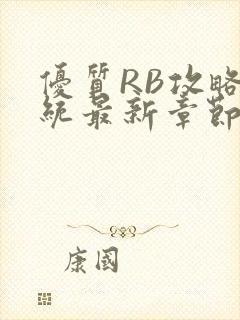 優質RB攻略
統最新章節
康國